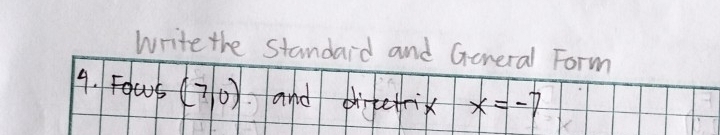 Write the Standard and General Form
9. Focus (7,0) and directrix x=-7